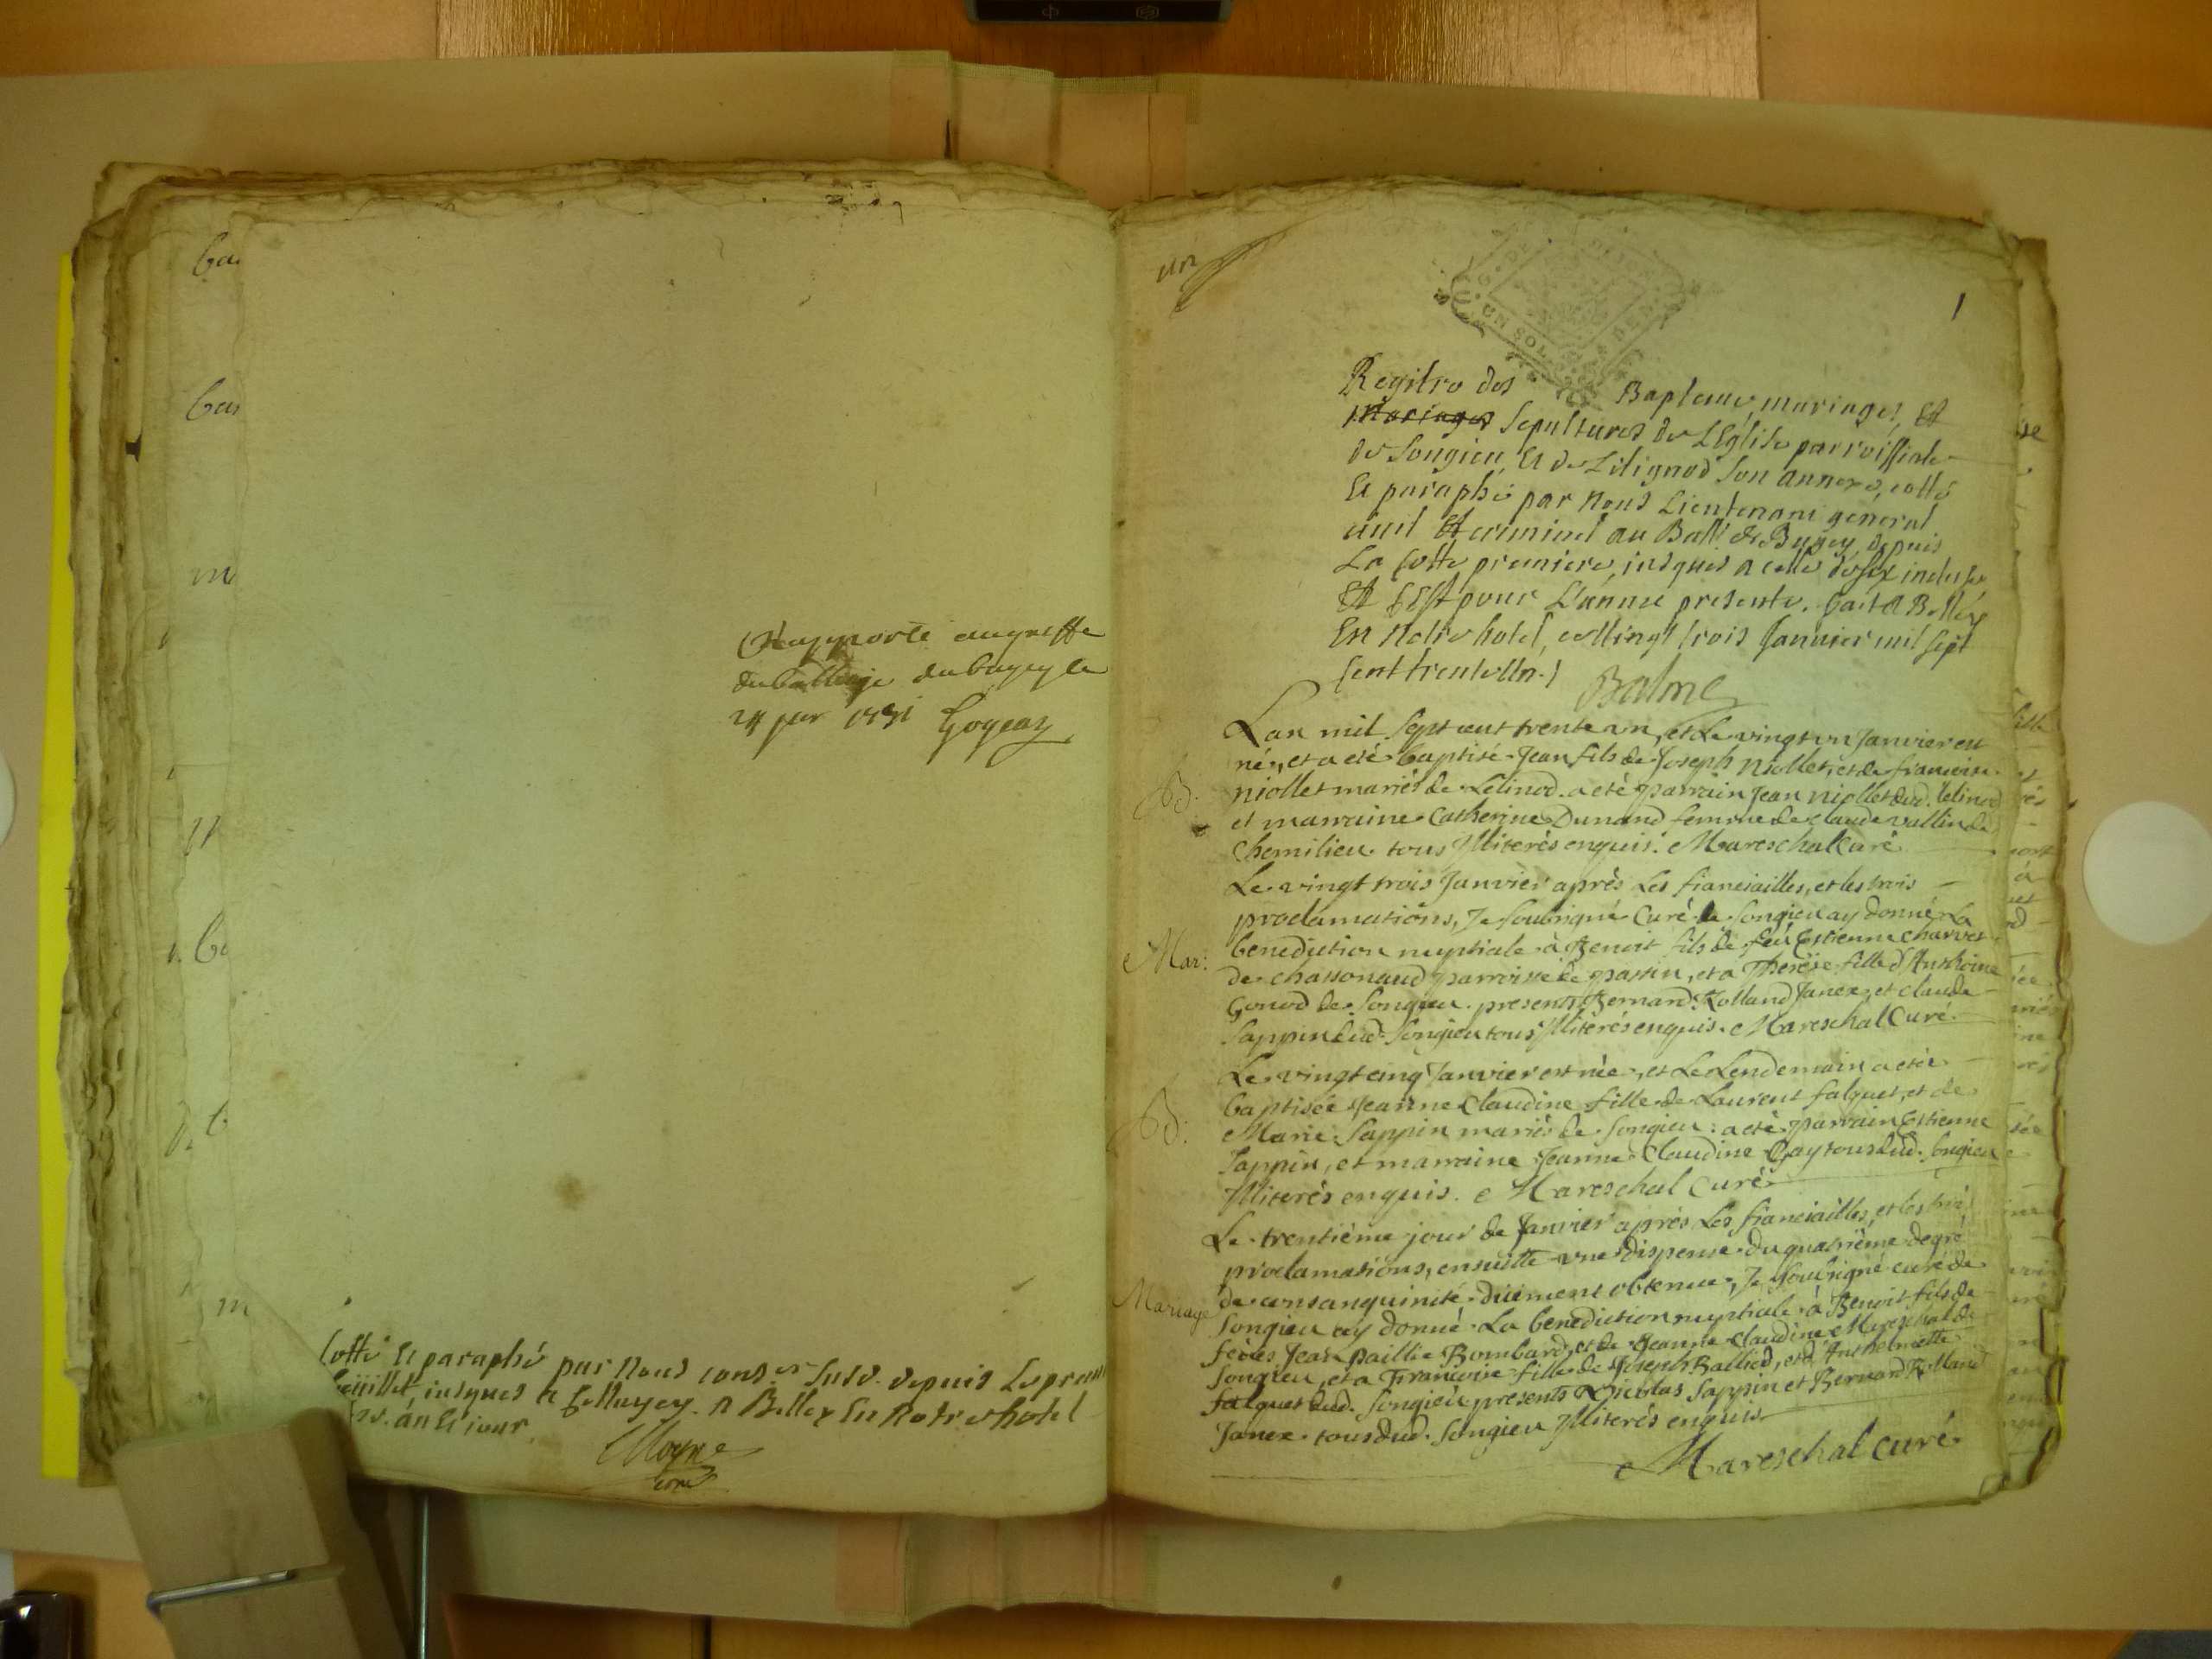 Rapporté au greffe
du balliage du bugey le
24 jer 1731 Gogeaz
Cotté Et paraphé par Nous susd. depuis Le premier
feüillet jusques a Belley En Notre hotel
an Et jour
Moyne
un
1
UN SOL
Regitre des Baptemes, mariages, Et
Mariages Sepultures de L'Eglise parroissiale
de Songieu, Et de Lilignod Son annexe, cotté
Et paraphé par Nous Lieutenant general
civil Et criminel au Ball. de Bugey, depuis
La Cotte premiere, jusques a celle de six incluse
Et c'Est pour L'année presente. fait a Belley
En Notre hotel, ce Vingt trois Janvier mil sept
Cent trente Un.
Balme
L'an mil sept cent trente un, et Le vingt un Janvier est
né, et a eté baptisé Jean fils de Joseph Niollet, et de francoise
B. Niollet mariés de Lelinod. a été parrain Jean Niollet dud. lelinod
et marraine Catherine Dunand femme de claude vallin de
Chemilieu tous Jlliterés enquis. Mareschal Curé
Le vingt trois Janvier après Les fianciailles, et les trois
proclamations, Je soubsigné Curé de Songieu ay donné La
Mar: benediction nuptiale à Benoit fils de feu Estienne Charvet
de chassonaud parroisse de passin, et a Therèse fille d'Anthoine
Gonod de Songieu. presents Bernard Rolland Janex, et claude
Sappin dud. Songieu tous Jlliterés enquis. Mareschal Curé
Le vingt cinq Janvier est née, et Le Lendemain a eté
baptisée Jeanne Claudine fille de Laurent falquet, et de
B: Marie Sappin mariés de Songieu: a eté parrain Estienne
Sappin, et marraine Jeanne Claudine Gay tous dud. Songieu
Jlliterés enquis. Mareschal Curé
Le trentième jour de Janvier après Les fianciailles, et les trois
proclamations, ensuitte une dispense du quatrième degré
de consanguinité düement obtenue, Je soubsigné curé de
Mariage Songieu ay donné La benediction nuptiale à Benoit fils de
féues Jean paillie Bombard, et de Jeanne Claudine Mareschal de
Songieu, et a Francoise fille de Joseph Balliod, et d'Anthelmette
falquet dud. Songieu presents Nicolas Sappin et Bernard Rolland
Janex tous dud. Songieu Jlliterés enquis
Mareschal curé